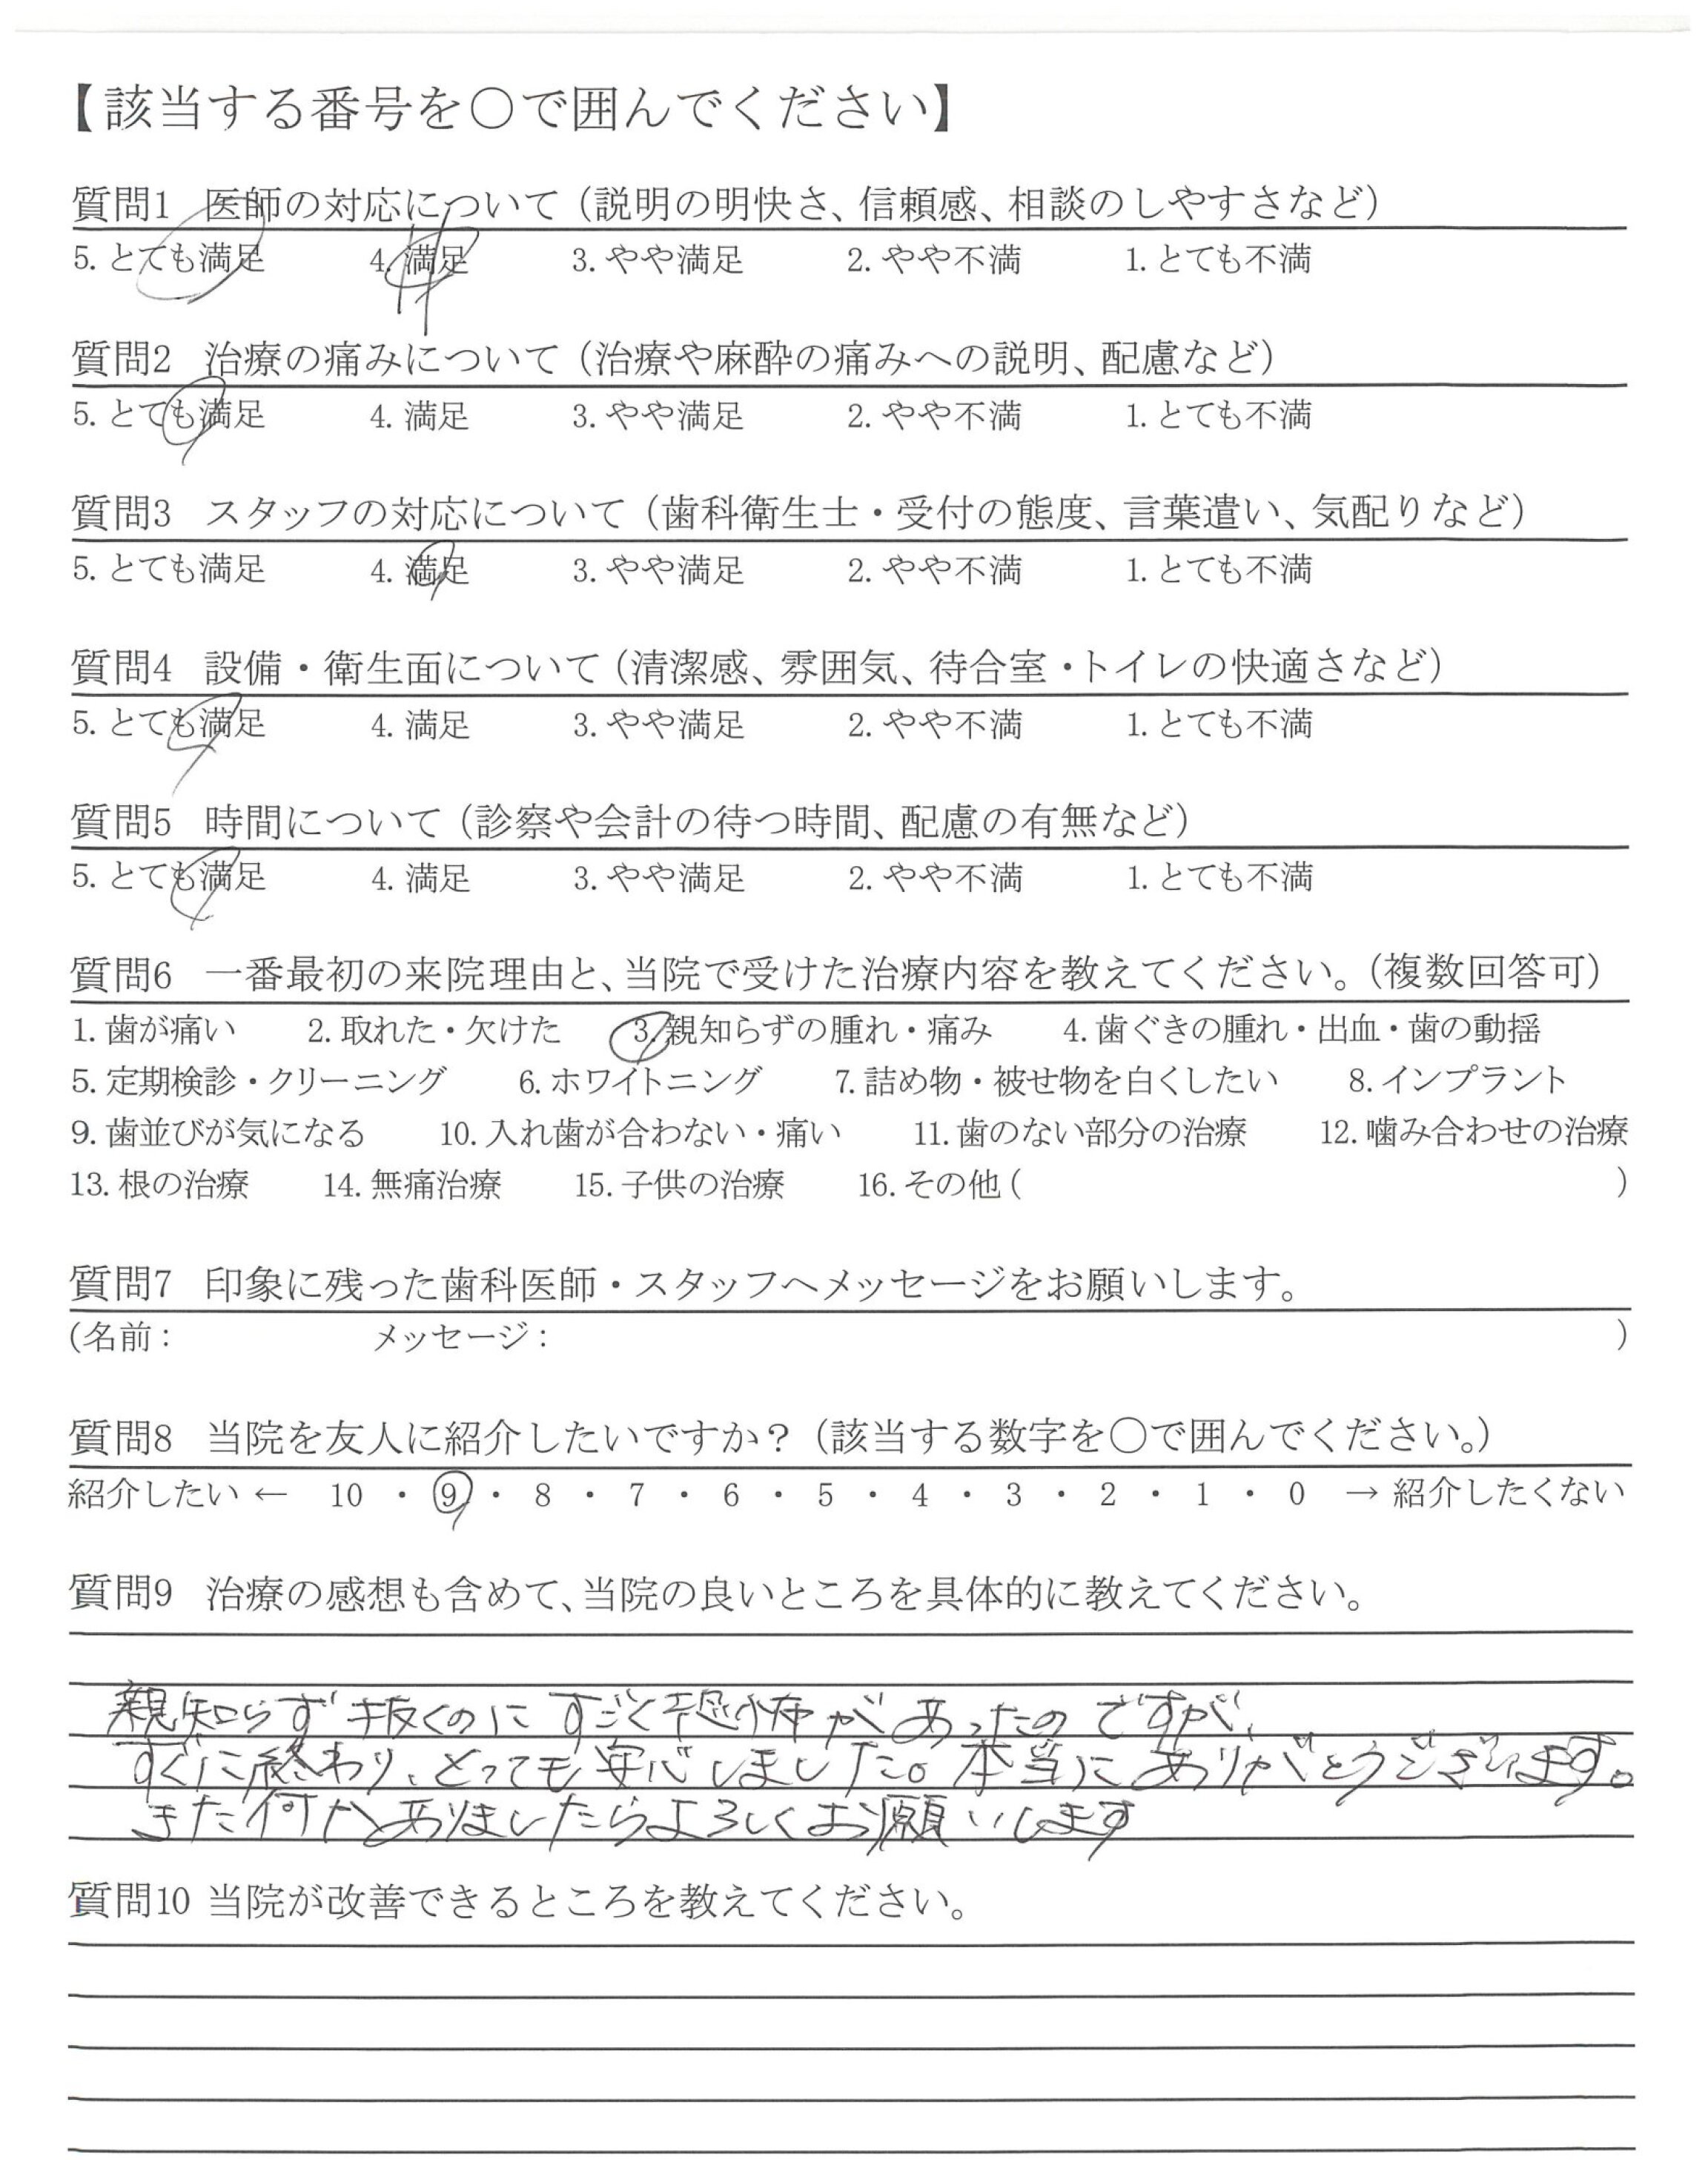 【該当する番号を○で囲んでください】
質問1 医師の対応について（説明の明快さ、信頼感、相談のしやすさなど）
5. とても満足 4. 満足 3. やや満足 2. やや不満 1. とても不満
質問2 治療の痛みについて（治療や麻酔の痛みへの説明、配慮など）
5. とても満足 4. 満足 3. やや満足 2. やや不満 1. とても不満
質問3 スタッフの対応について（歯科衛生士・受付の態度、言葉遣い、気配りなど）
5. とても満足 4. 満足 3. やや満足 2. やや不満 1. とても不満
質問4 設備・衛生面について（清潔感、雰囲気、待合室・トイレの快適さなど）
5. とても満足 4. 満足 3. やや満足 2. やや不満 1. とても不満
質問5 時間について（診察や会計の待つ時間、配慮の有無など）
5. とても満足 4. 満足 3. やや満足 2. やや不満 1. とても不満
質問6 一番最初の来院理由と、当院で受けた治療内容を教えてください。（複数回答可）
1. 歯が痛い 2. 取れた・欠けた 3. 親知らずの腫れ・痛み 4. 歯ぐきの腫れ・出血・歯の動揺
5. 定期検診・クリーニング 6. ホワイトニング 7. 詰め物・被せ物を白くしたい 8. インプラント
9. 歯並びが気になる 10. 入れ歯が合わない・痛い 11. 歯のない部分の治療 12. 噛み合わせの治療
13. 根の治療 14. 無痛治療 15. 子供の治療 16. その他 ( )
質問7 印象に残った歯科医師・スタッフへメッセージをお願いします。
(名前： メッセージ： )
質問8 当院を友人に紹介したいですか？（該当する数字を○で囲んでください。）
紹介したい ← 10 ・ 9 ・ 8 ・ 7 ・ 6 ・ 5 ・ 4 ・ 3 ・ 2 ・ 1 ・ 0 → 紹介したくない
質問9 治療の感想も含めて、当院の良いところを具体的に教えてください。
親知らず抜くのにすごく恐怖があったのですが、
すぐに終わり、とっても安心しました。本当にありがとうございます。
また何かありましたらよろしくお願いします
質問10 当院が改善できるところを教えてください。